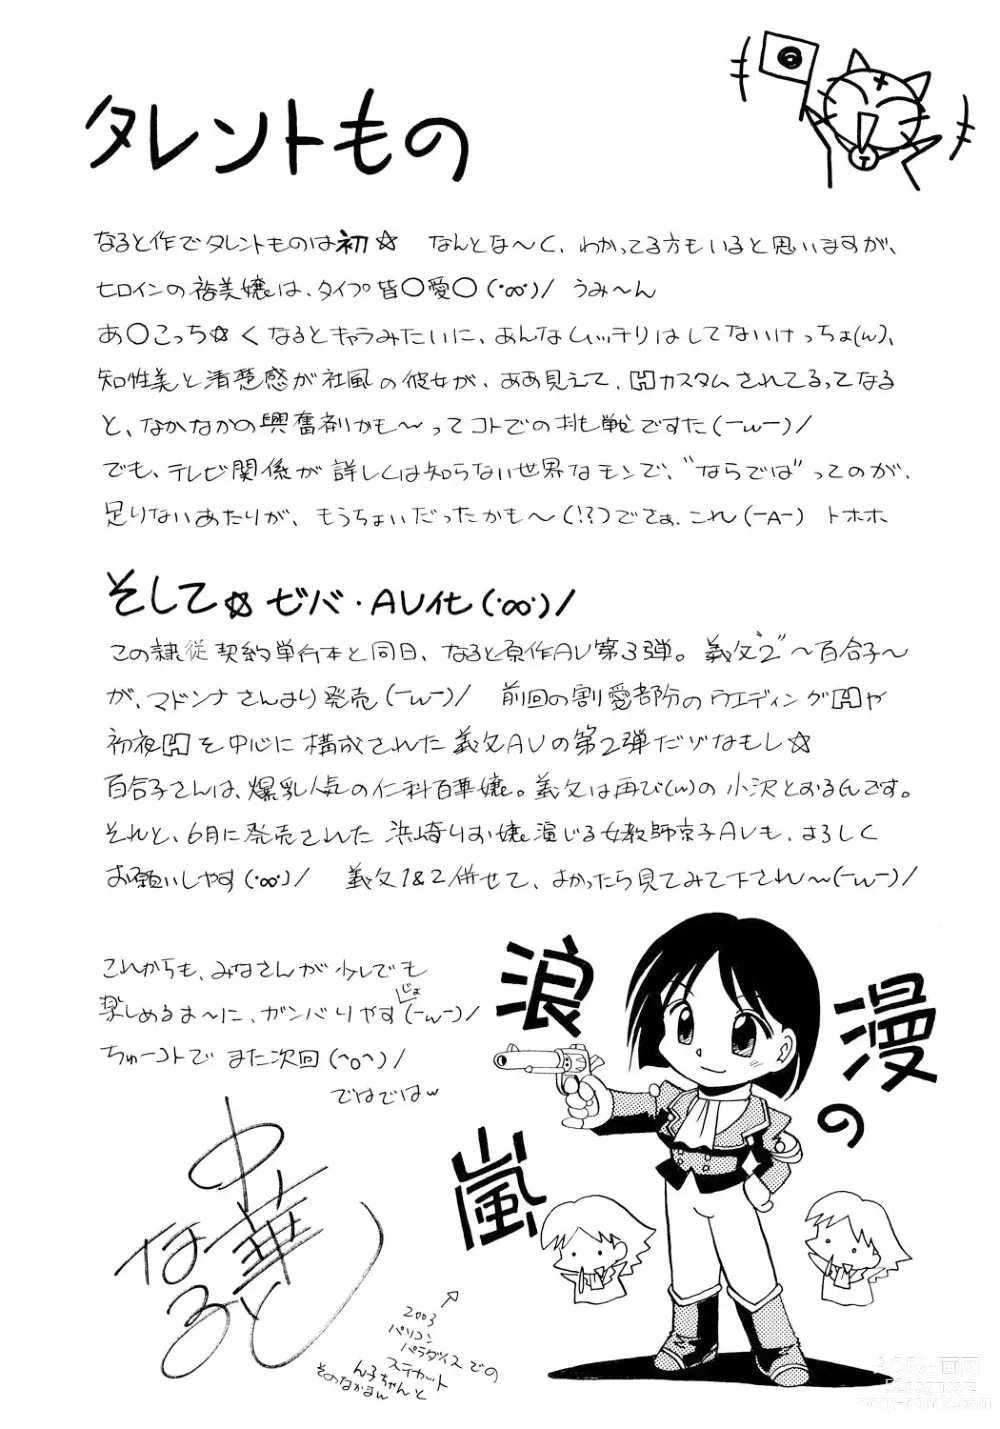 タレントもの
なると作でタレントものは初☆ なんとな～く、わかってる方もいると思いますが、
ヒロインの裕美嬢は、タイプ皆〇愛〇(・∞・)/ うみ～ん
あ〇こっち☆く なるとキャラみたいに、あんなムッチリはしてないけっちょ(w)、
知性美と清楚感が社風の彼女が、ああ見えて、Hカスタムされてるってなる
と、なかなかの興奮剤かも～ってコトでの挑戦ですた(ーwー)/
でも、テレビ関係が詳しくは知らない世界なモンで、"ならでは"ってのが、
足りないあたりが、もうちょいだったかも～(!?)でさぁ、これ(ーAー) トホホ
そして☆ビバ・AV化(・∞・)/
この隷従契約単行本と同日、なると原作AV第3弾。義父"2"～百合子～
が、マドンナさんより発売(ーwー)/ 前回の割愛部分のウエディングHや
初夜Hを中心に構成された義父AVの第2弾だゾなもし☆
百合子さんは、爆乳人気の仁科百華嬢。義父は再び(w)の小沢とおるんです。
それと、6月に発売された浜崎りお嬢演じる女教師京子AVも、よろしく
お願いしやす(・∞・)/ 義父1&2併せて、よかったら見てみて下され～(ーwー)/
これからも、みなさんが少しでも
楽しめるよ～に、ガンバりやす(ーwー)/
じょ
ちゅーコトで また次回(^o^)/
ではではw
浪漫の嵐
中華なると
2003
パソコン
パラダイスでの
ステカット
ん子ちゃんと
そのなかまw